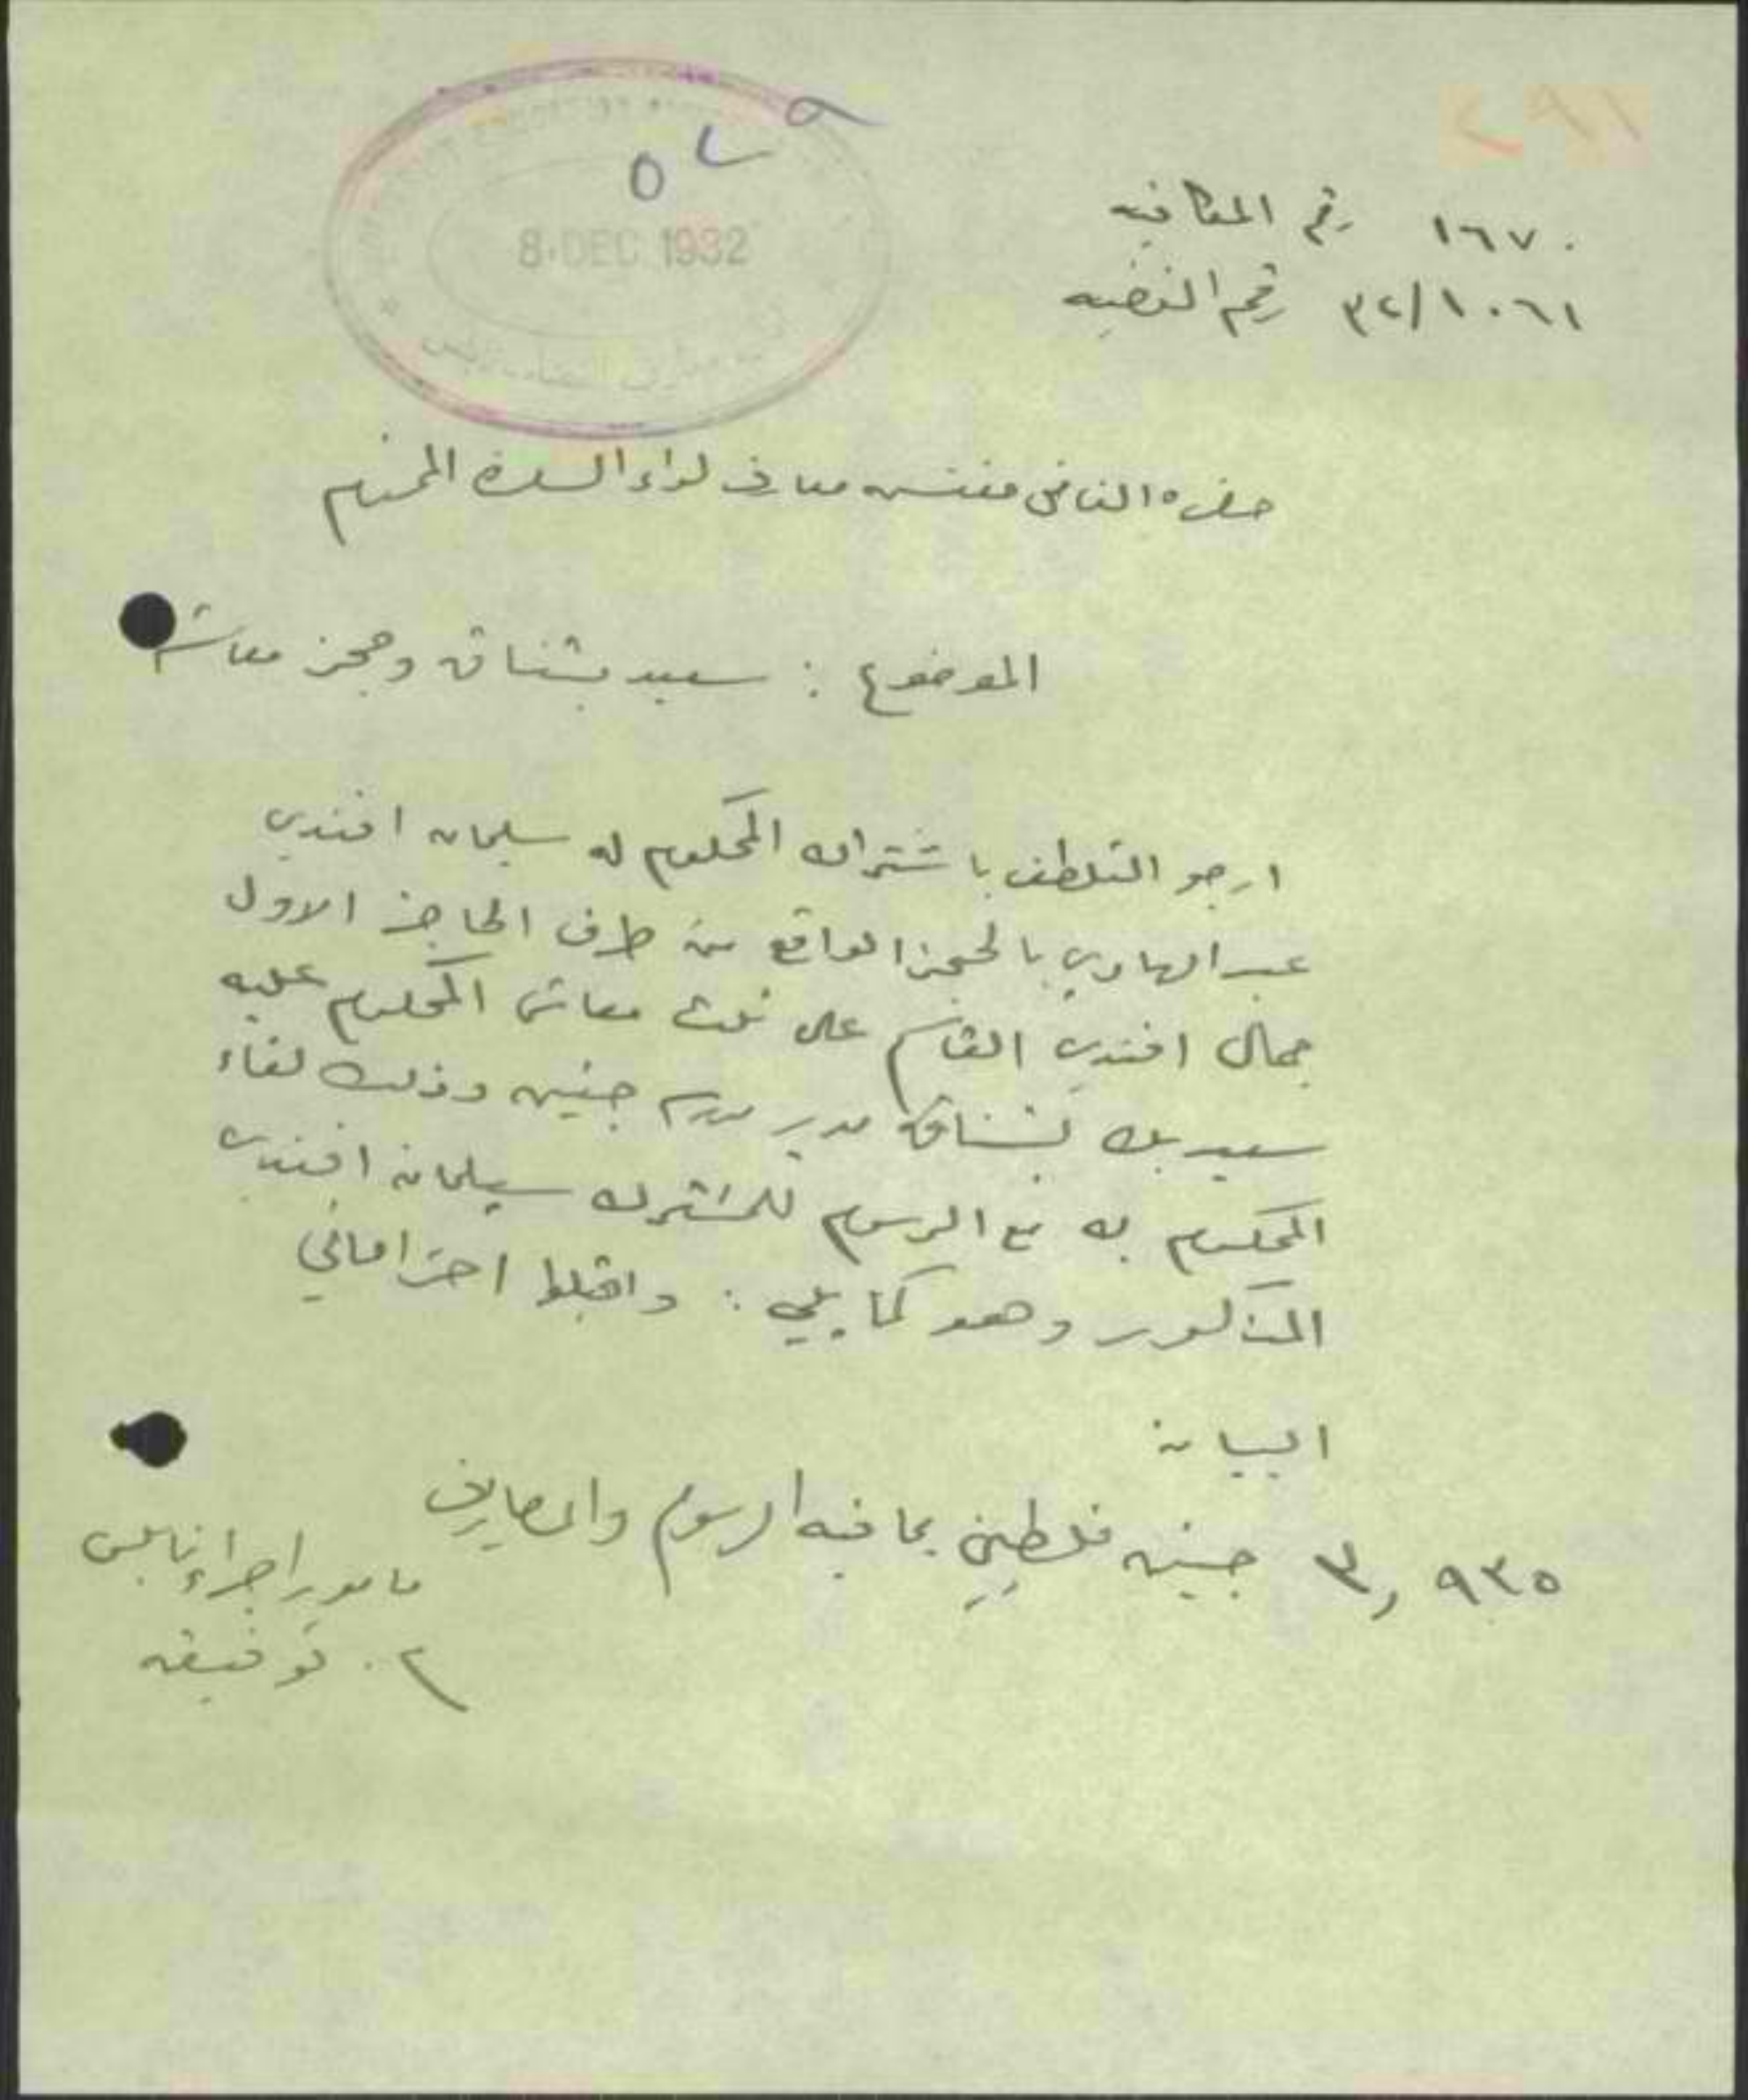 ٢٩١
٥٢٩
8 DEC 1932
١٦٧٠ رقم المكاتبه
٣٢/١٠٦١ رقم القضيه
حضرة الفاضل مفتش معارف لواء السامرة المحترم
الموضوع : سعيد بشناق وحجز معاشه
ارجو التلطف باشتراك المحكوم له سليمان افندي
عبد الهادي بالحجز الواقع من طرف الحاجز الاول
جمال افندي القاسم على ثلث معاش المحكوم عليه
سعيد بك بشناق مدير مدرسة جنين وذلك لقاء
المحكوم به مع الرسوم للمشترك سليمان افندي
المذكور وهو كما يلي : واقبلوا احتراماتي
البيان
٣,٩٣٥ جنيه فلسطيني بما فيه الرسوم والمصاريف
مامور اجراء نابلس
م. توفيق